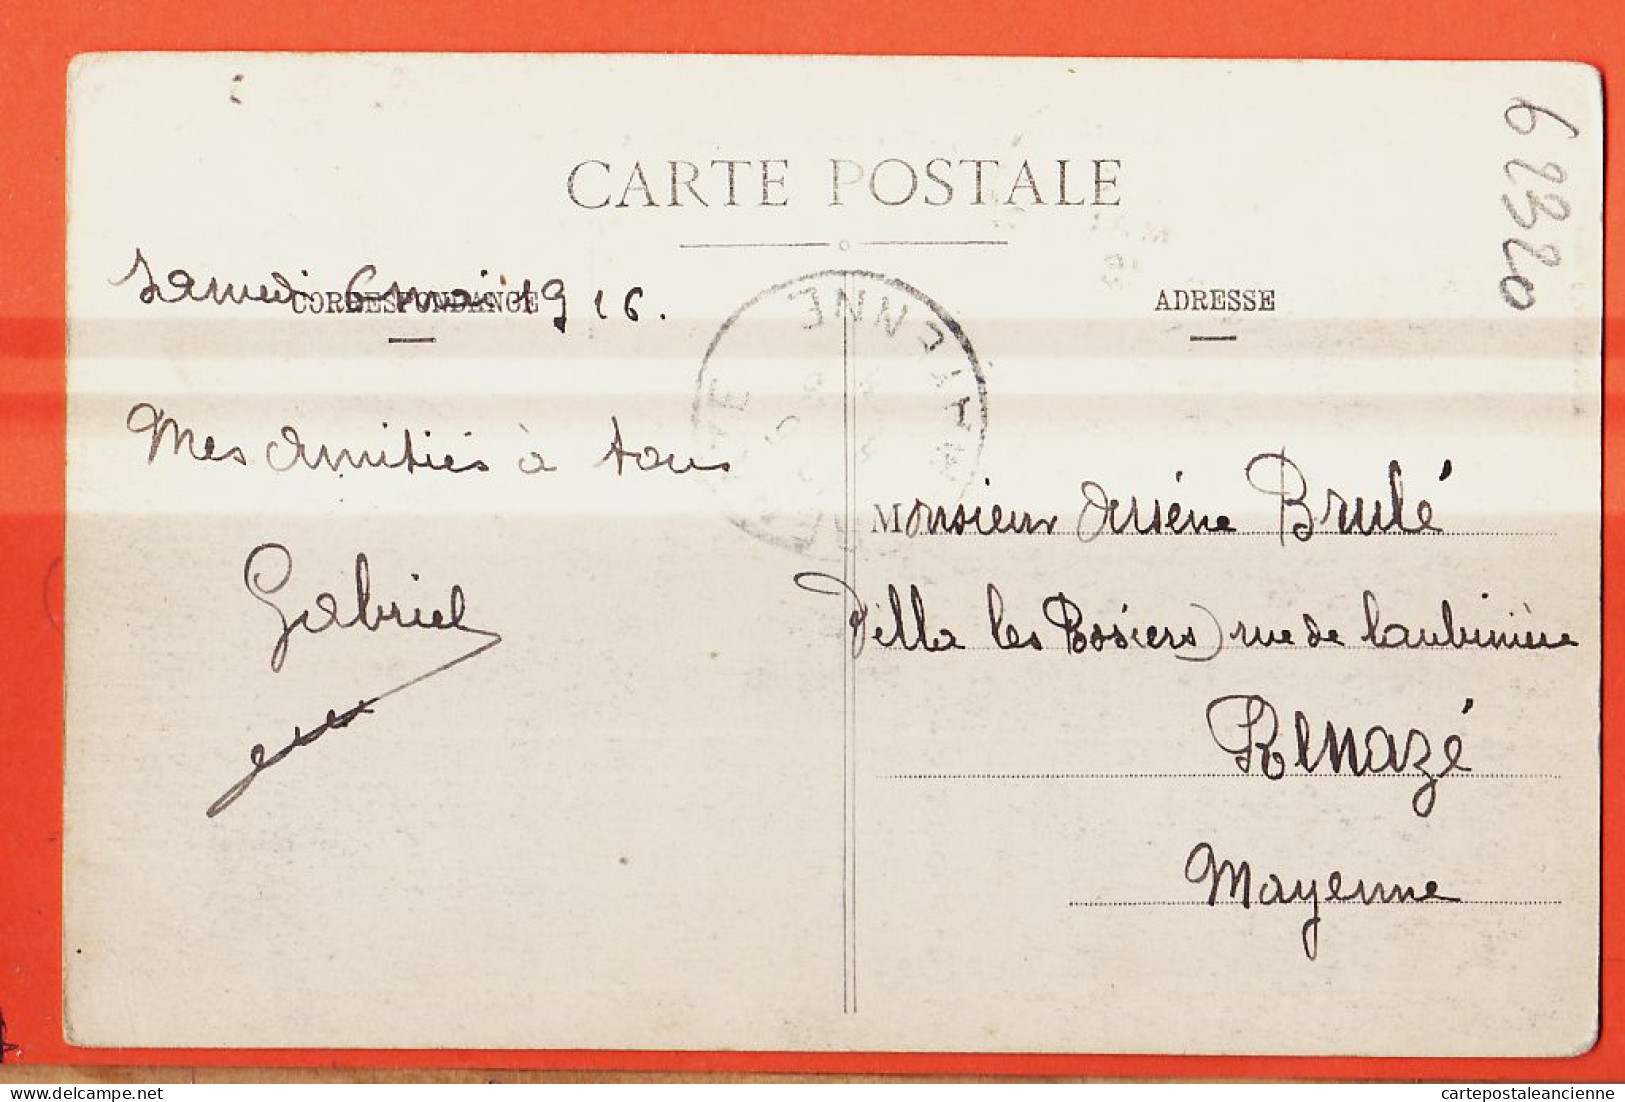 CARTE POSTALE
CORRESPONDANCE
ADRESSE
Samedi 6 mai 1916.
Mes Amitiés à tous
Gabriel
Monsieur Arsène Brulé
Villa les Rosiers) rue de Laubinière
Renazé
Mayenne
MAYENNE
62320
cartepostaleancienne